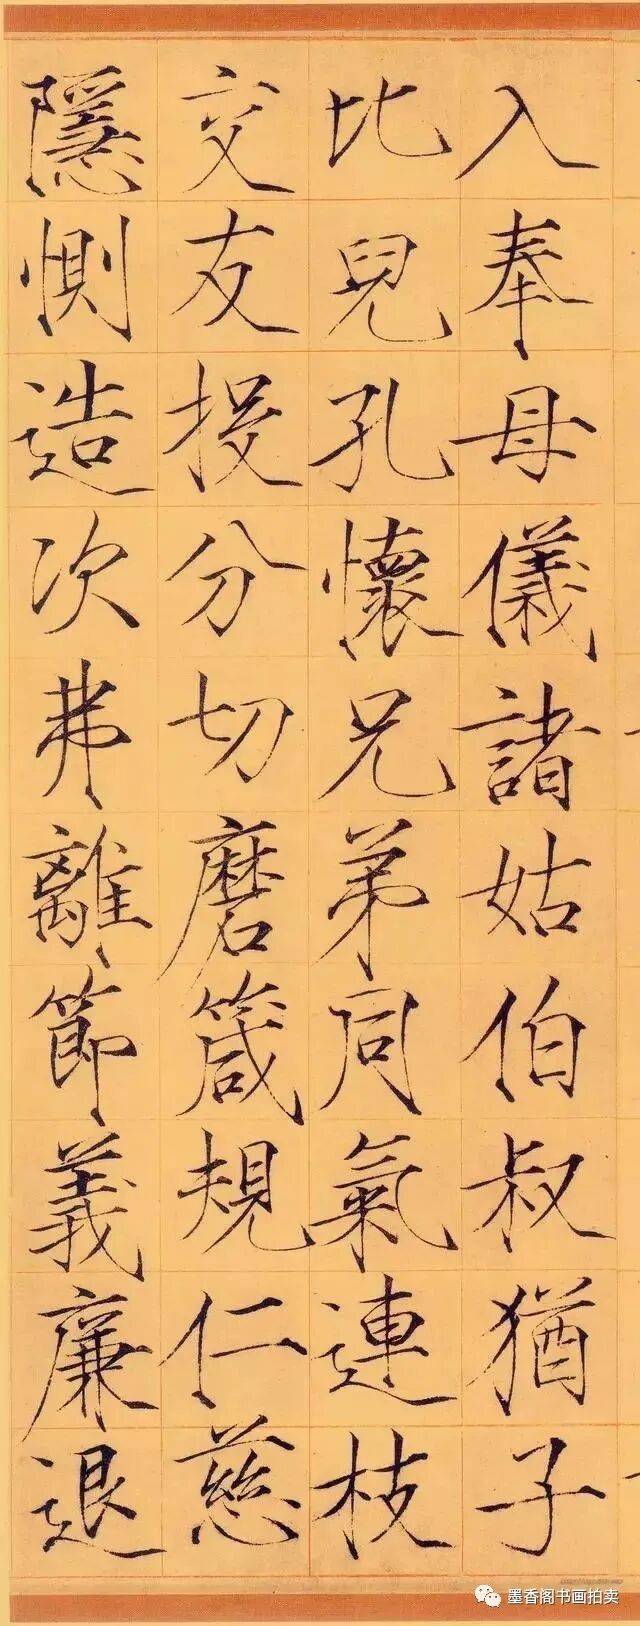 入奉母儀諸姑伯叔猶子
比兒孔懷兄弟同氣連枝
交友投分切磨箴規仁慈
隱惻造次弗離節義廉退
墨香阁书画拍卖